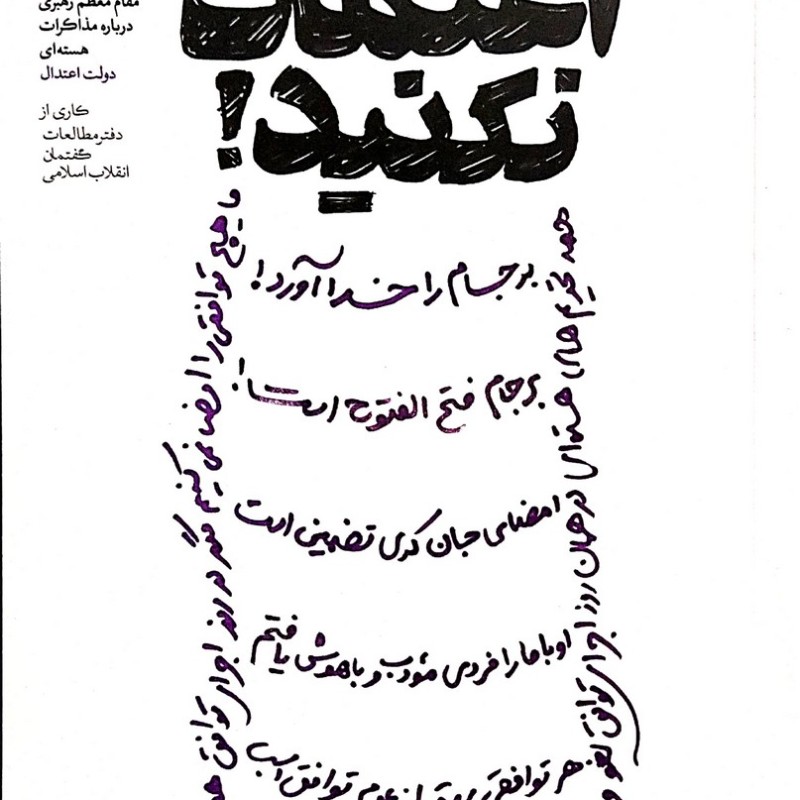 مقام معظم رهبری
درباره مذاکرات
هسته‌ای
دولت اعتدال
کاری از
دفتر مطالعات
گفتمان
انقلاب اسلامی
نکنید!
همه تحریم های هسته‌ای در همان روز اجرای توافق لغو
برجام را خدا آورد!
برجام فتح الفتوح است!
امضای جان کری تضمین است
اوباما را فردی مؤدب و باهوش یافتم
هر توافقی از عدم توافق است
ما هیچ توافقی را امضا نمی کنیم مگر در روز اجرای توافق